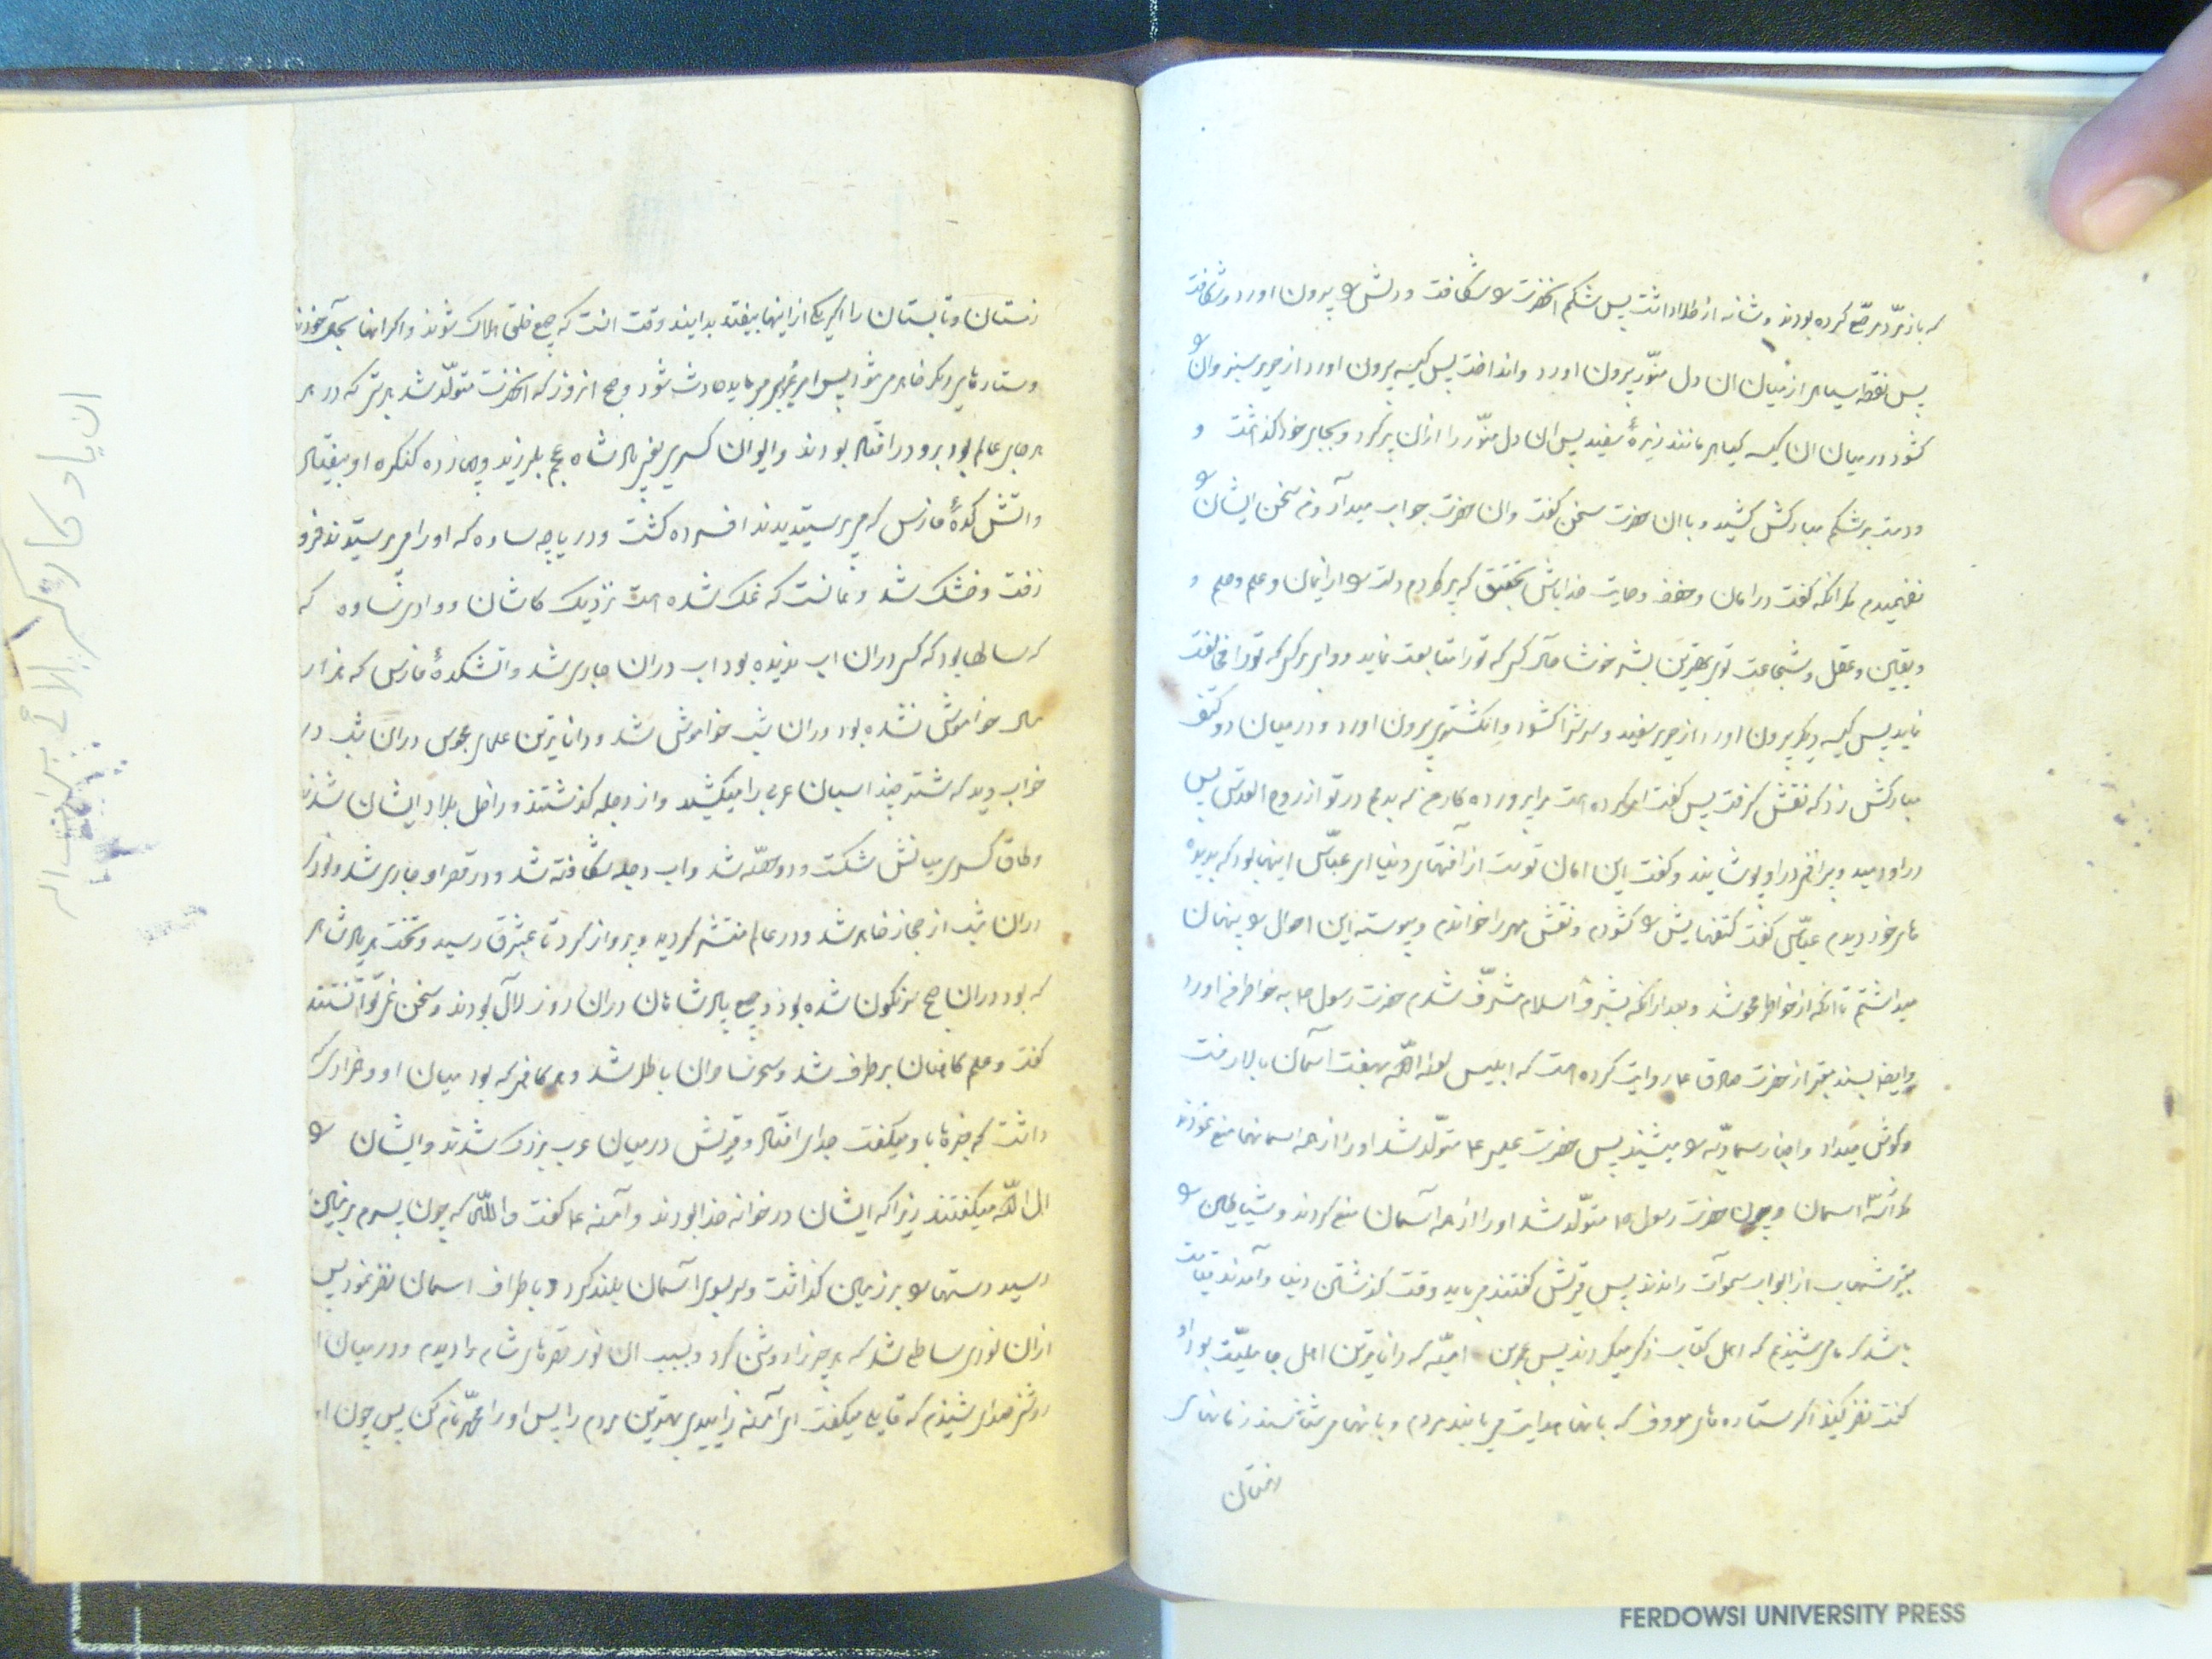 که باز برّد مرصّع کرده بودند و شانه از طلا داشت پس شکم انحضرت را شکافت و دلش را بیرون اورد و شکافت
پس نقطه سیاهی از میان ان دل منوّر بیرون اورد و انداخت پس کیسه بیرون اورد از حریر سبز وان را
کشود در میان ان کیسه کیاهی مانند زیرهٔ سفید پس ان دل منوّر را ازان پر کرد و بجای خود کذاشت و
و دست بر شکم مبارکش کشید و با ان حضرت سخن کفت وان حضرت جواب میداد و من سخن ایشان را
نفهمیدم مکر انکه کفت در امان و حفظ و حمایت خدا باش بتحقیق که پر کردم دلت را از ایمان و علم و حلم و
و یقین و عقل و شجاعت توی بهترین بشر خوشا حال کسی که تو را متابعت نماید و وای بر کسی که تو را مخالفت
نماید پس کیسه دیکر بیرون اورد از حریر سفید و سرش را کشود و انکشتری بیرون اورد و در میان دو کتف
مبارکش زد که نقش کرفت پس کفت امر کرده است مرا پروردکارم که بدمم در تو از روح القدس پس
در او دمید و پیراهنی در او پوشانید و کفت این امان توست از آفتهای دنیا ای عبّاس اینها بود که بدیدهٔ
های خود دیدم عبّاس کفت کتفهایش را کشودم و نقش مهر را خواندم و پیوسته این احوال را پنهان
میداشتم تا انکه از خواطرم محو شد و بعد ازانکه بشرف اسلام مشرّف شدم حضرت رسول ص به خواطرم اورد
وایضا بسند معتبر از حضرت صادق ع روایت کرده است که ابلیس لعنه اللّه بهفت آسمان بالا میرفت
و کوش میداد و اخبار سماویّه را میشنید پس حضرت عیسی ع متولّد شد او را از سه اسمان منع نمودند
و چون حضرت رسول ص متولّد شد او را از همه آسمان منع کردند و شیاطین را
بتیر شهاب از ابواب سموات راندند پس قریش کفتند میباید وقت کذشتن دنیا و آمدن قیامت
باشد که ما می شنیدیم که اهل کتاب ذکر میکردند پس عمرو بن امیّه که داناترین اهل جاهلیّت بود او
کفت نظر کنید اکر ستاره های معروف که بانها هدایت می یابند مردم و بانها می شناسند زمانهای
زمستان
زمستان و تابستان را اکر یکی از اینها بیفتد بدانید وقت انست که جمیع خلق هلاک شوند و اکر انها بجای خودند
و ستاره های دیکر ظاهر می شود پس امر غریبی میباید حادث شود و صبح انروز که انحضرت متولّد شد هر بتی که در هر
هر جای عالم بود برو در افتاد بودند و ایوان کسری یعنی پادشاه عجم بلرزید و چهارده کنکره او بیفتاد
و آتش کدهٔ فارس که می پرستیدند افسرده کشت و دریاچه ساوه که او را می پرستیدند فرو
رفت و خشک شد و نمک شده است نزدیک کاشان و وادی ساوه که
که سالها بود که کسی در ان اب ندیده بود اب در ان جاری شد و اتشکدهٔ فارس که هزار
سال خواموش نشده بود در ان شب خواموش شد و داناترین علمای مجوس در ان شب در
خواب دید که شتر چند اسبان عربی را میکشید و از دجله کذشتند و داخل بلاد ایشان شدند
و طاق کسری میانش شکست و دو حصّه شد و اب دجله شکافته شد و در قصر او جاری شد و نوری
در ان شب از حجاز ظاهر شد و در عالم منتشر کردید و پرواز کرد تا بمشرق رسید و تخت هر پادشاهی
که بود در ان صبح سرنکون شده بود و جمیع پادشاهان در ان روز لال بودند و سخن نمی توانستند
کفت و علم کاهنان بر طرف شد و سحر ساحران باطل شد و هر کاهنی که بود میان او و همزادی که
داشت که خبرها باو میکفت جدای افتاد و قریش در میان عرب بزرک شدند و ایشان را
ال اللّه میکفتند زیرا که ایشان در خوانه خدا بودند و آمنه ع کفت واللّه که چون پسرم بر زمین
رسید دستها را بر زمین کذاشت و سر بسوی آسمان بلند کرد و باطراف اسمان نظر نمود پس
ازان نوری ساطع شد که هر چیز را روشن کرد و بسبب ان نور قصرهای شام را دیدم و در میان ا
روشنی صدای شنیدم که قایلی میکفت ای آمنه زاییدی بهترین مردم را پس او را محمّد نام کن پس چون ا
FERDOWSI UNIVERSITY PRESS